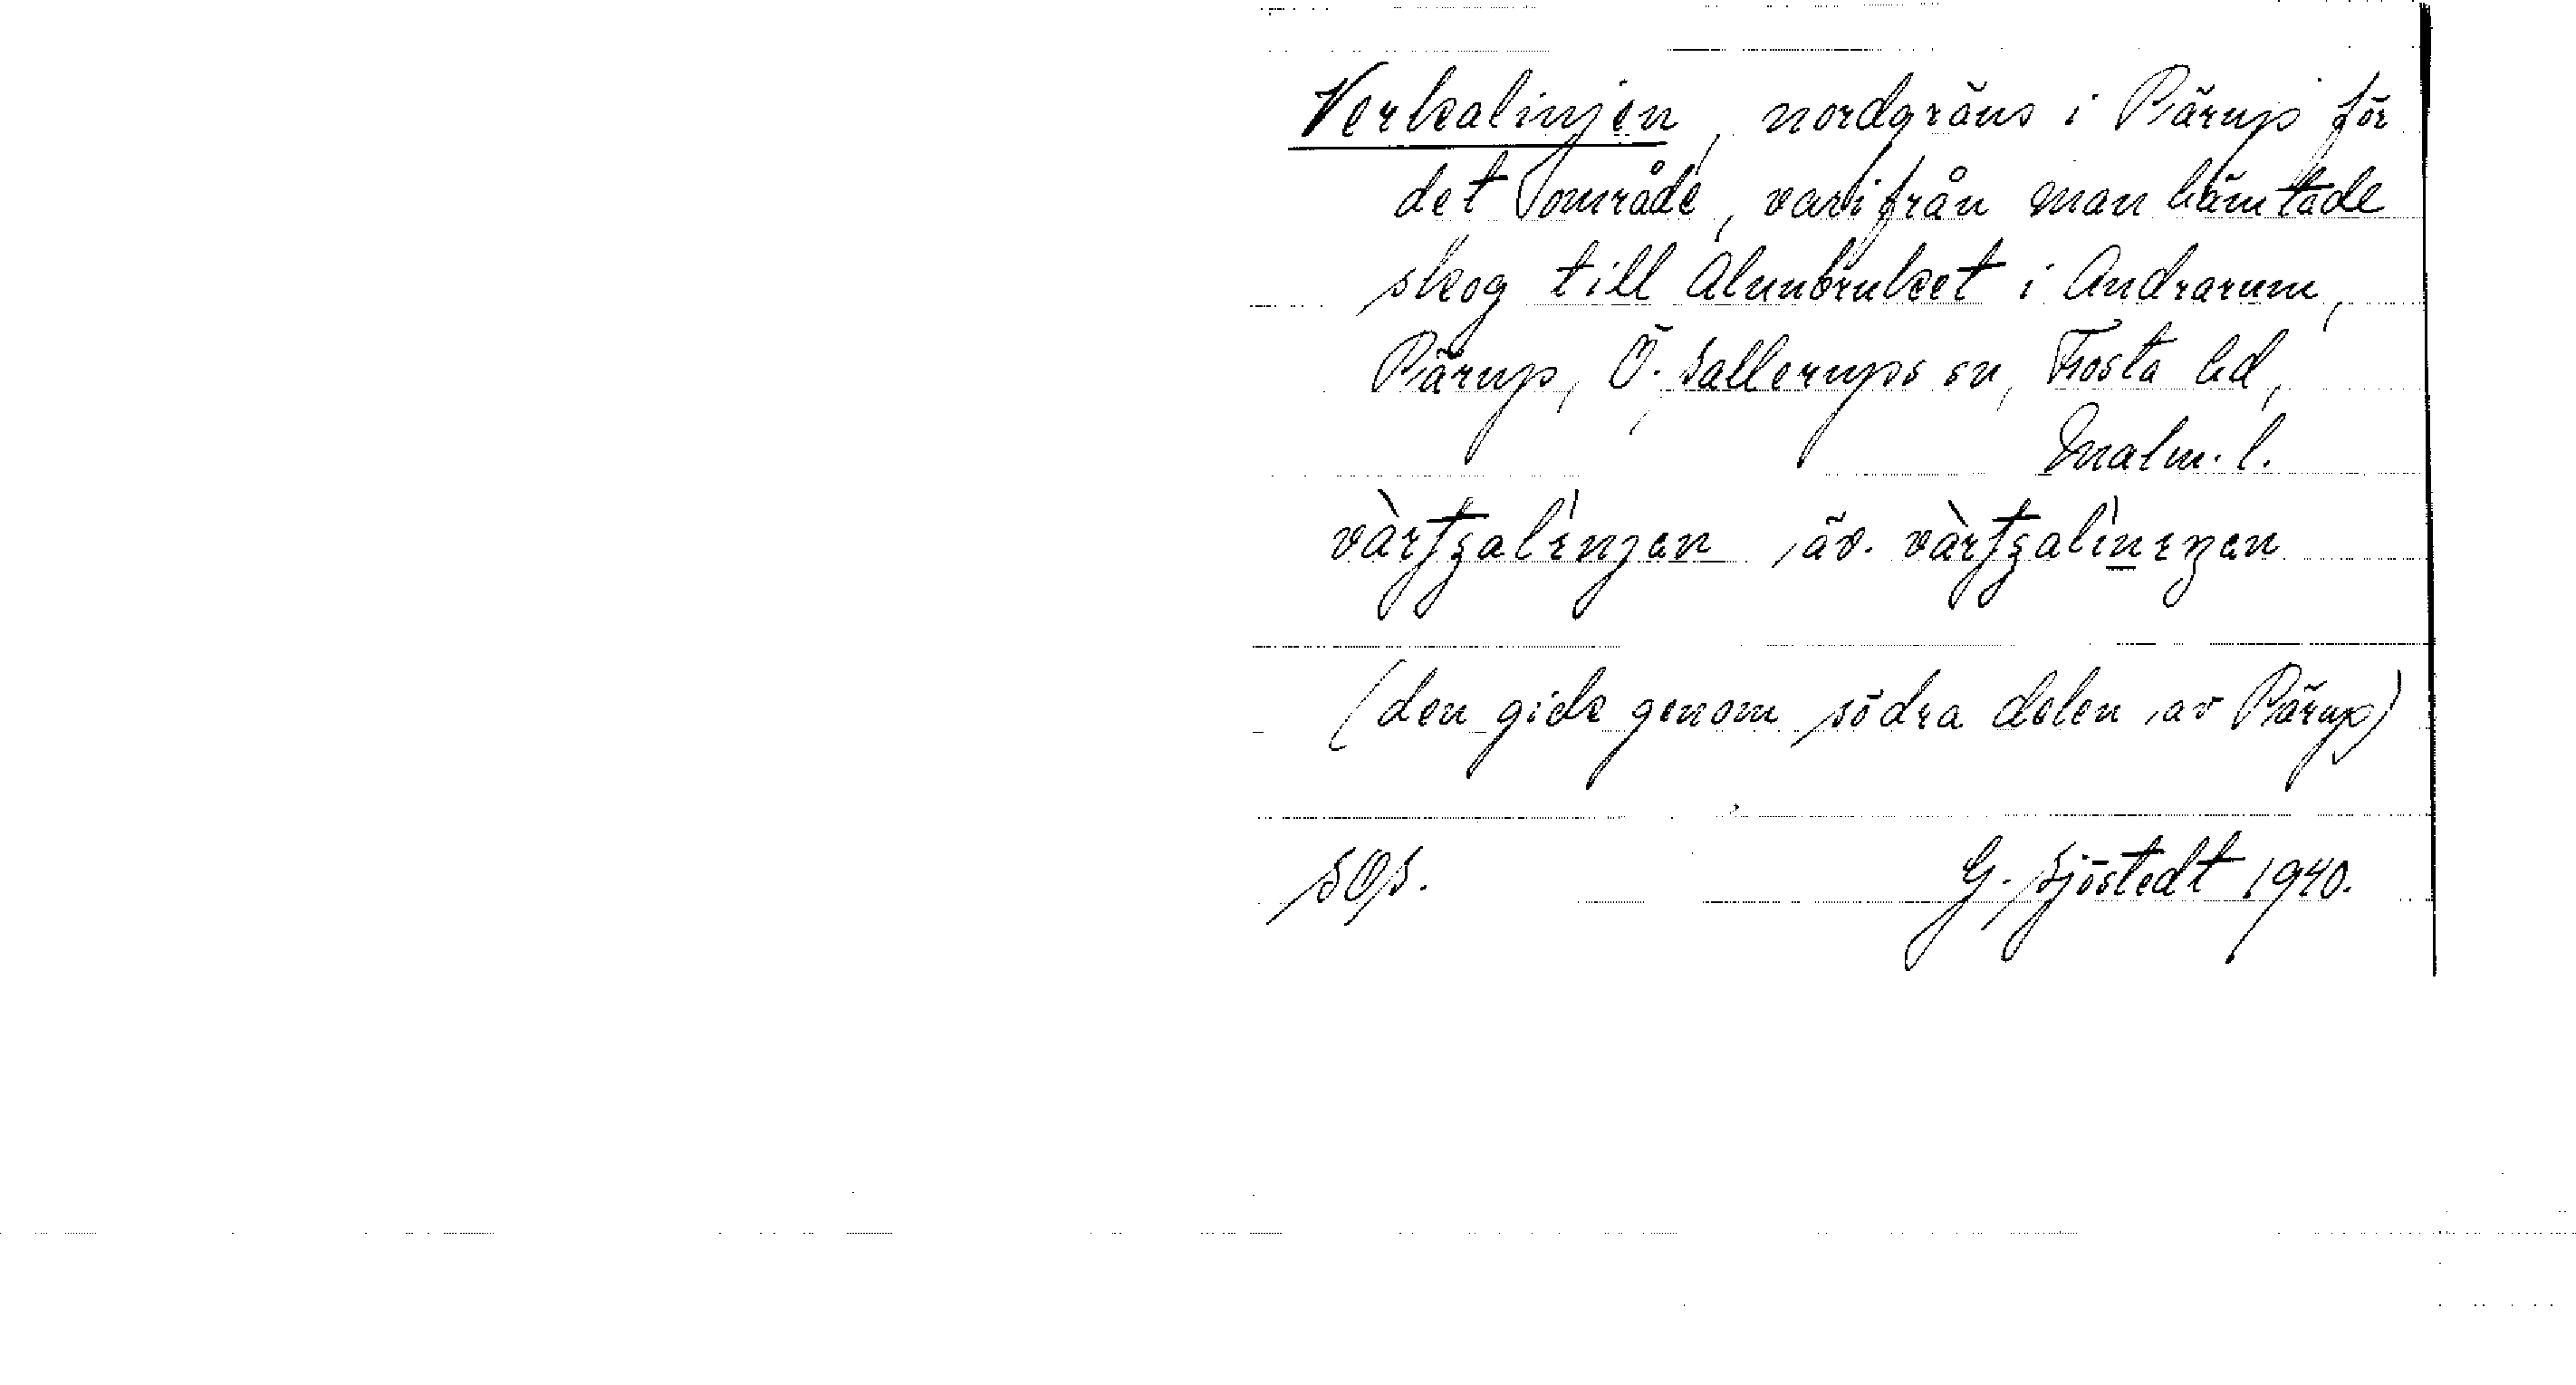 Verkalinjen, nordgräns i Pärup för
det område, varifrån man hämtade
skog till Alunbruket i Andrarum,
Pärup, Ö. Sallerups sn, Frosta hd,
Malm. l.
äv.
(den gick genom södra delen av Pärup)
SOS. G. Sjöstedt 1940.